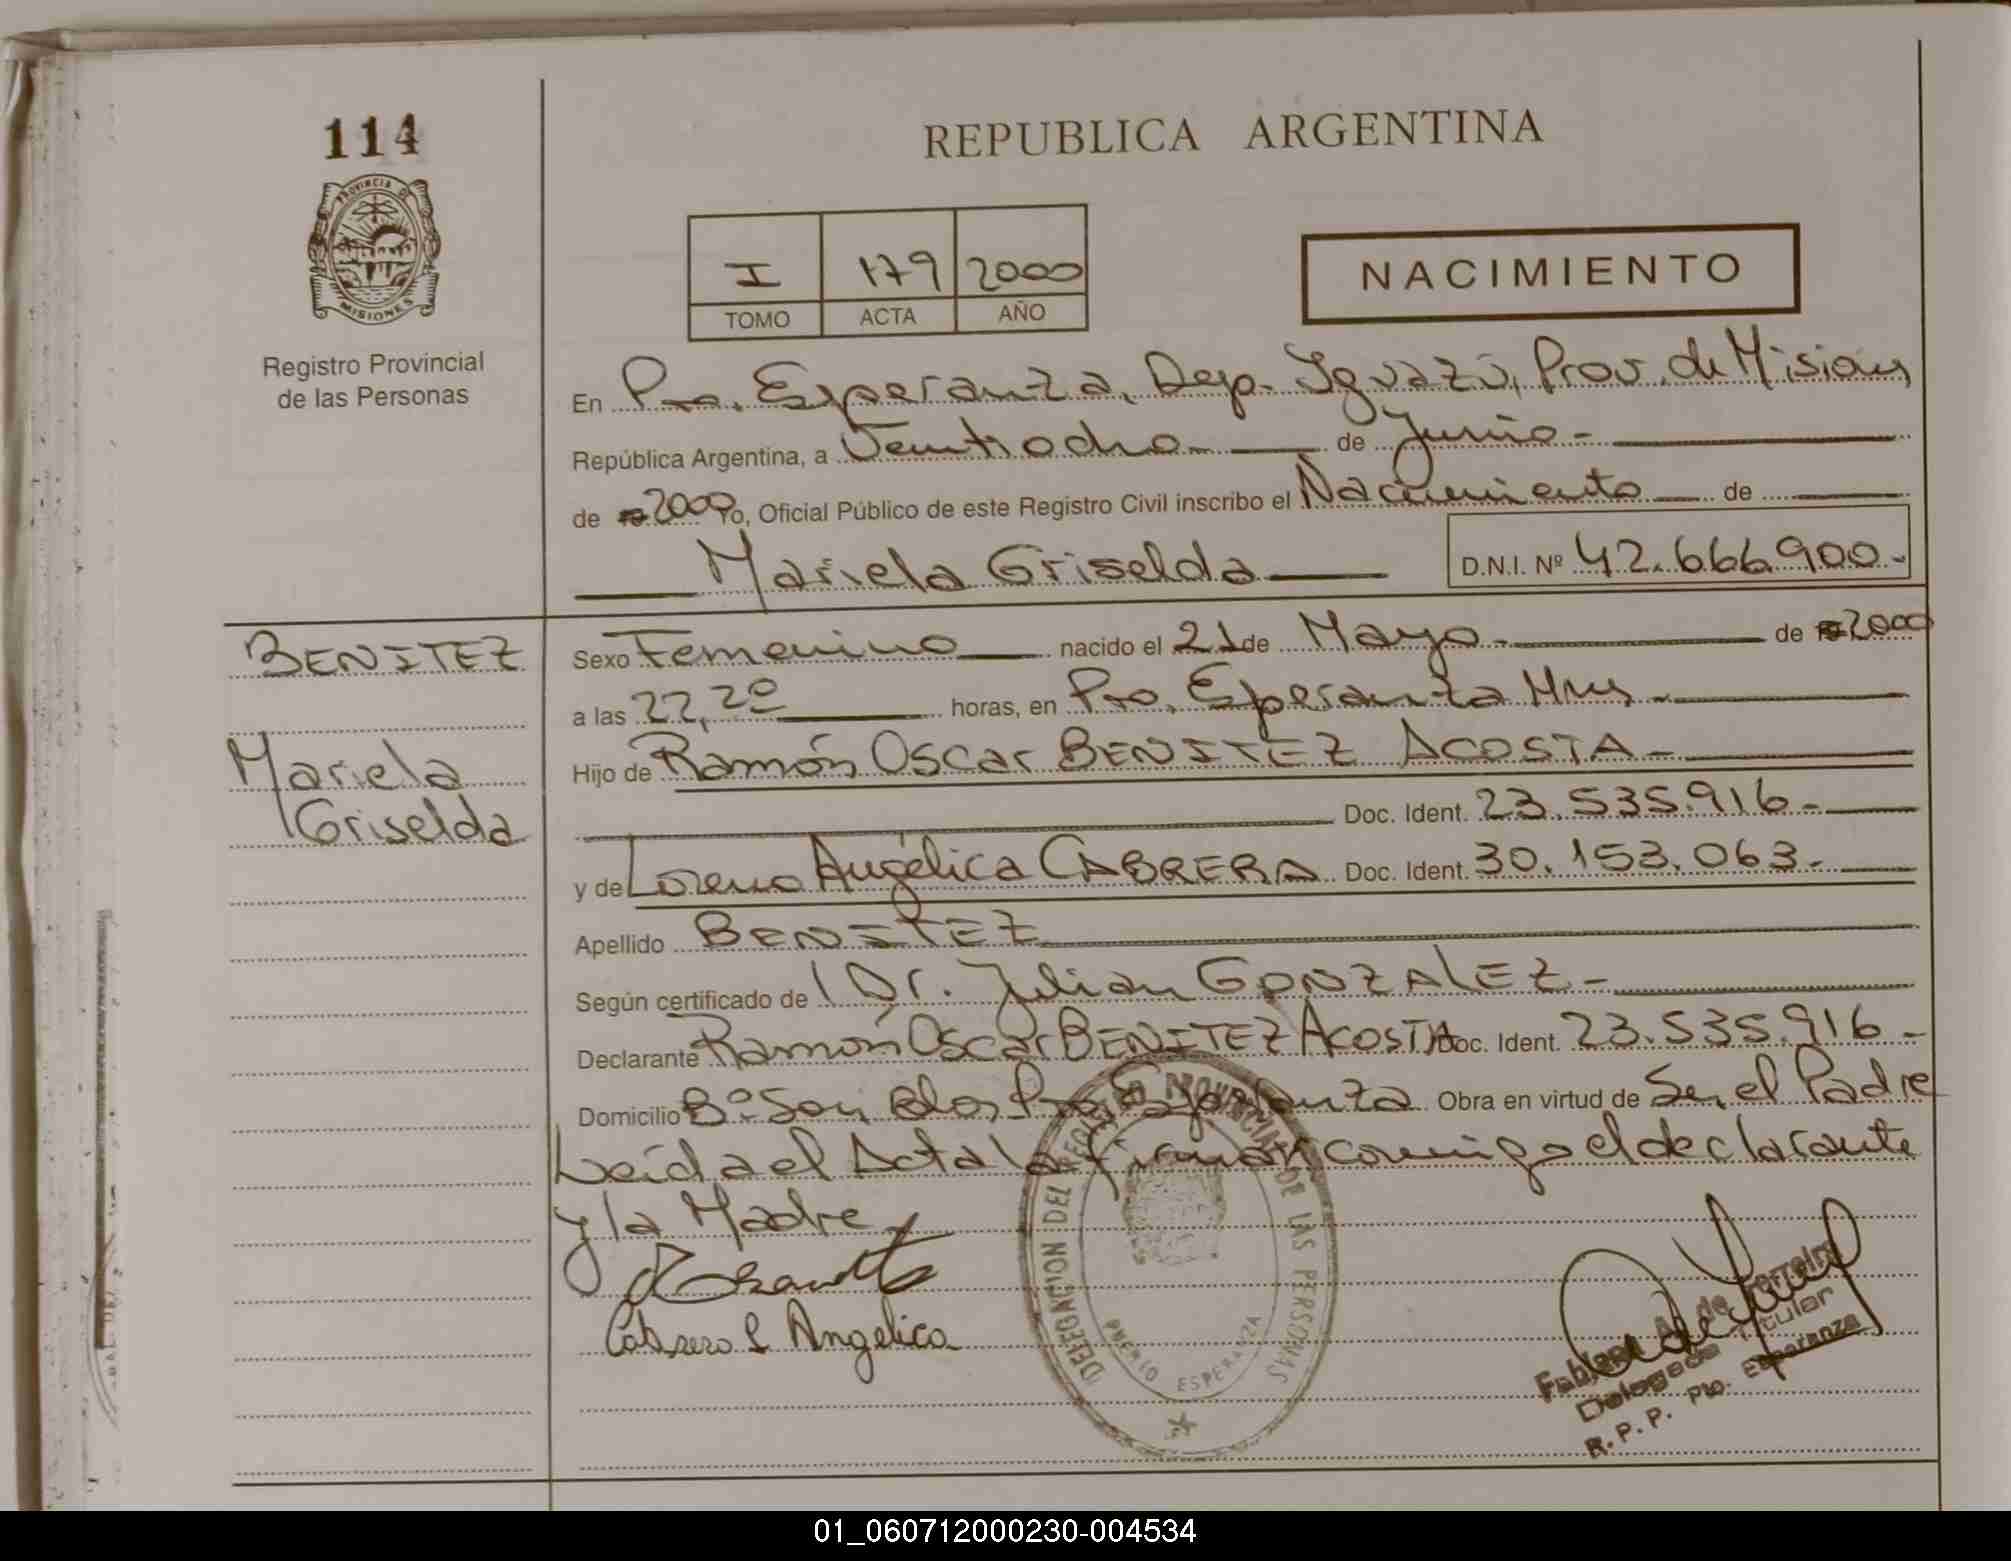 114
PROVINCIA DE
MISIONES
Registro Provincial
de las Personas
REPUBLICA ARGENTINA
I 179 2000
TOMO ACTA AÑO
NACIMIENTO
En Pto. Esperanza, Dep. Iguazú, Prov. de Misiones
República Argentina, a Veintiocho de Junio -
de 2000 Yo, Oficial Público de este Registro Civil inscribo el Nacimiento de
Mariela Griselda D.N.I. Nº 42.666.900.-
BENITEZ
Mariela
Griselda
Sexo Femenino nacido el 21 de Mayo - de 2000
a las 22,20 horas, en Pto. Esperanza Mnes -
Hijo de Ramón Oscar BENITEZ ACOSTA -
Doc. Ident. 23.535.916 -
y de Lorena Angélica CABRERA Doc. Ident. 30.153.063.-
Apellido BENITEZ
Según certificado de Dr. Julian GONZALEZ -
Declarante Ramón Oscar BENITEZ ACOSTA Doc. Ident. 23.535.916 -
Domicilio Bº San Blas Pto. Esperanza Obra en virtud de Ser el Padre
Leida el Acta la firman conmigo el declarante
y la Madre
Cabrera L Angelica
DELEGACION DEL REGISTRO PROVINCIAL DE LAS PERSONAS
PUERTO ESPERANZA
Fabiana A. de Ferreira
Delegada Titular
R.P.P. Pto. Esperanza
01_060712000230-004534